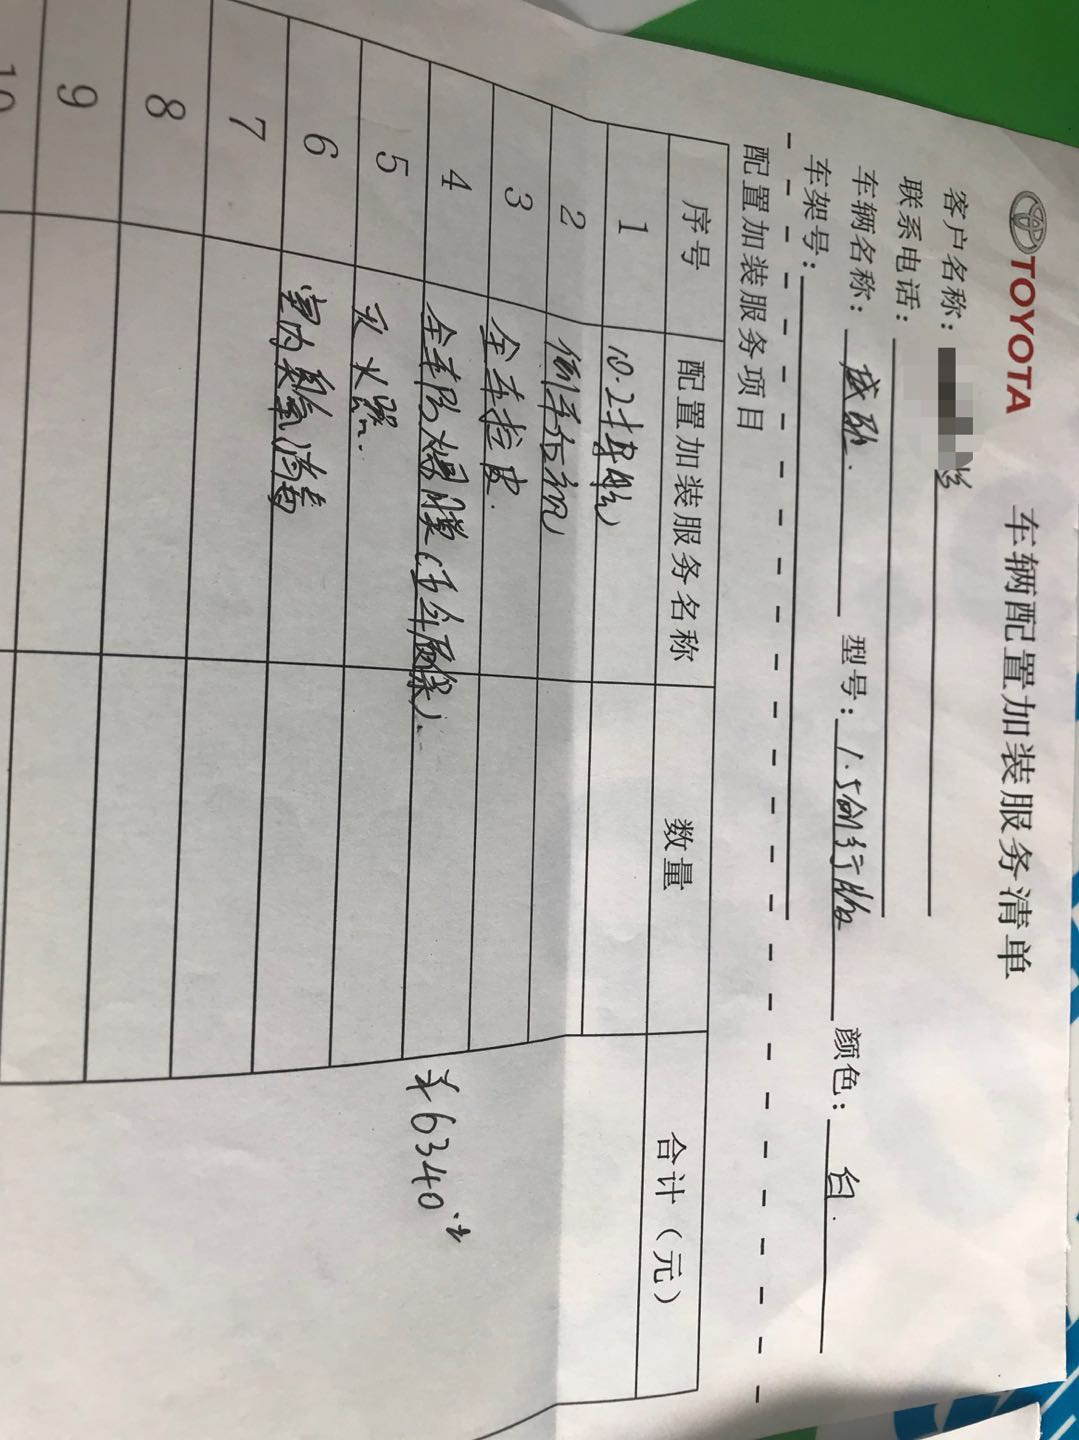 TOYOTA
车辆配置加装服务清单
客户名称:
联系电话:
车辆名称: 威驰. 型号: 1.5创行版 颜色: 白.
车架号:
配置加装服务项目
序号 配置加装服务名称 数量 合计(元)
1 10.2寸导航
2 倒车后视
3 全车拉皮.
4 全车防爆膜(五年质保).
5 灭火器.
6 室内臭氧消毒
¥6340.元
7
8
9
10